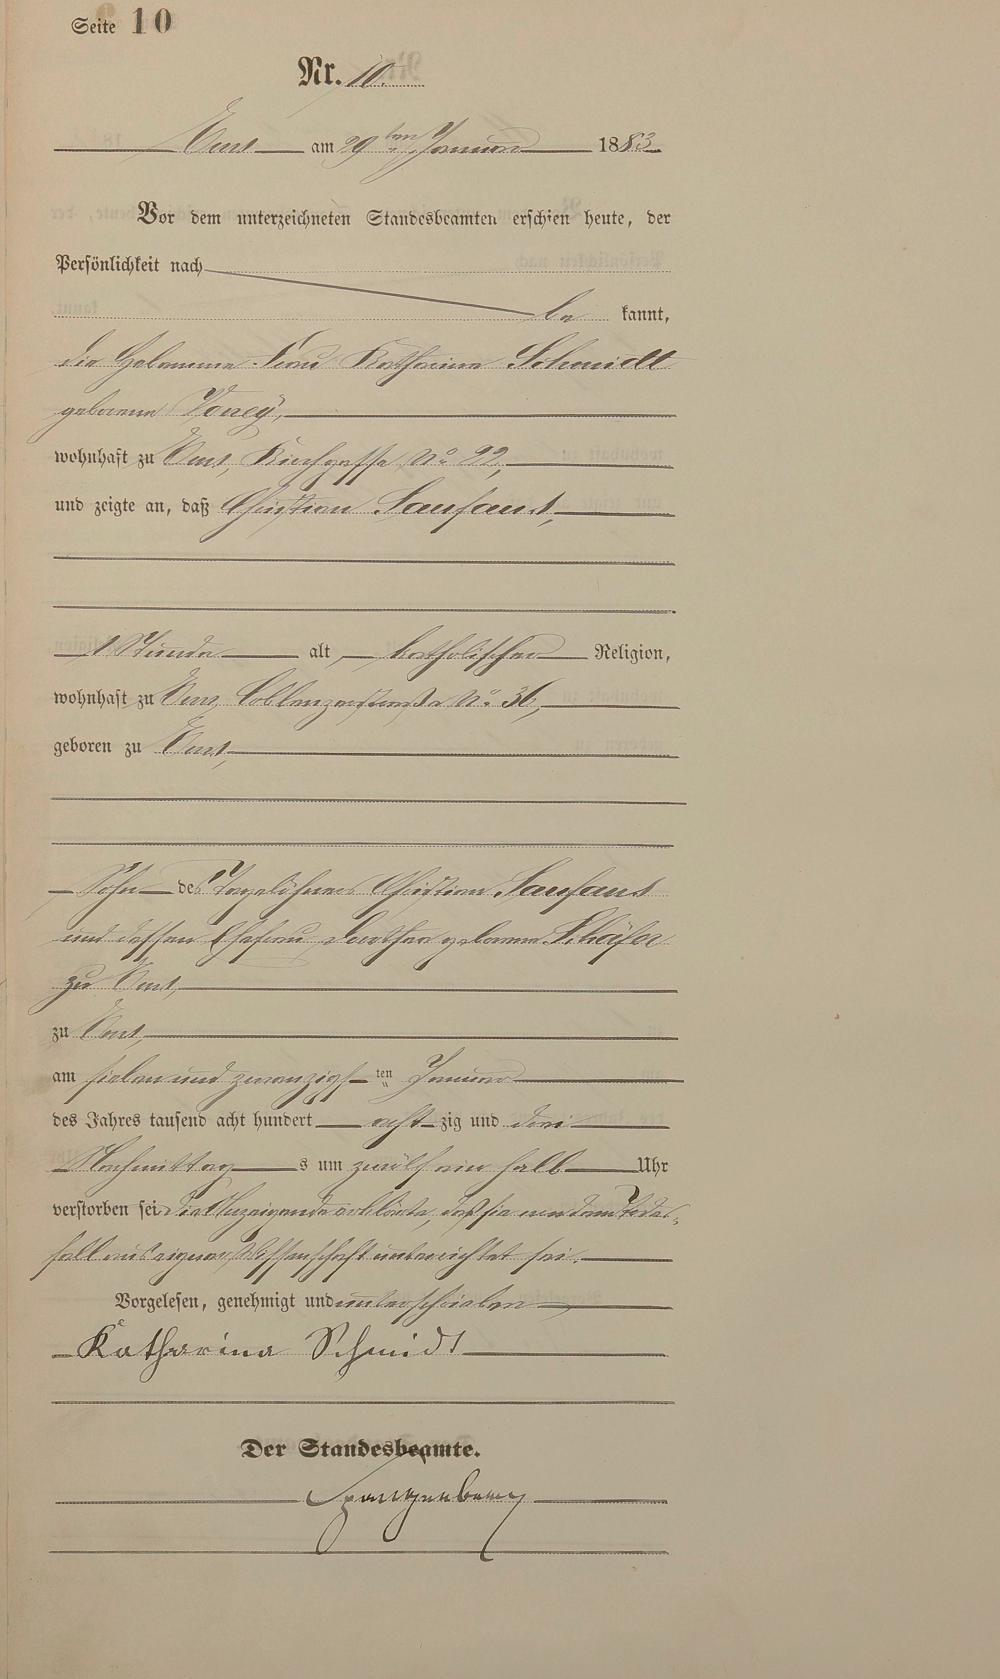 Seite 10
Nr. 10.
Ems am 29ten Januar 1883
Vor dem unterzeichneten Standesbeamten erschien heute, der
Persönlichkeit nach
be kannt,
die Hebamme Frau Katharina Schmidt
geborene
wohnhaft zu Ems, Kirchgasse No 22,
und zeigte an, daß Christian Saufaus,
1 Stunde alt, katholischer Religion,
wohnhaft zu Ems, Coblenzerstraße No 36,
geboren zu Ems,
Sohn des Tagelöhners Christian Saufaus
und dessen Ehefrau Dorothea geborene Schäfer
zu Ems,
zu Ems,
am sieben und zwanzigsten Januar
des Jahres tausend acht hundert achtzig und drei
Nachmittags um zwölf ein halb Uhr
verstorben sei. Die Anzeigende erklärte, daß sie von dem Todes-
fall aus eigener Wissenschaft unterrichtet sei.
Vorgelesen, genehmigt und unterschrieben
Katharina Schmidt
Der Standesbeamte.
Spangenberg